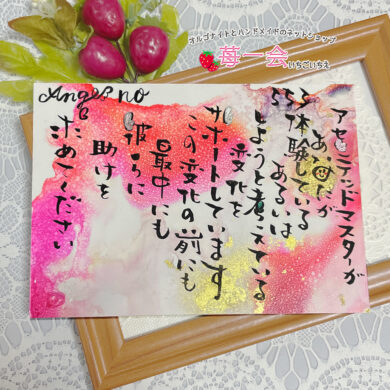 オルゴナイトとハンドメイドのネットショップ
苺一会
いちごいちえ
Angel no
353
アセンデッドマスターが
あなたが
体験している
あるいは
しようと考えている
変化を
サポートしています
この変化の前にも
最中にも
彼らに
助けを
求めてください